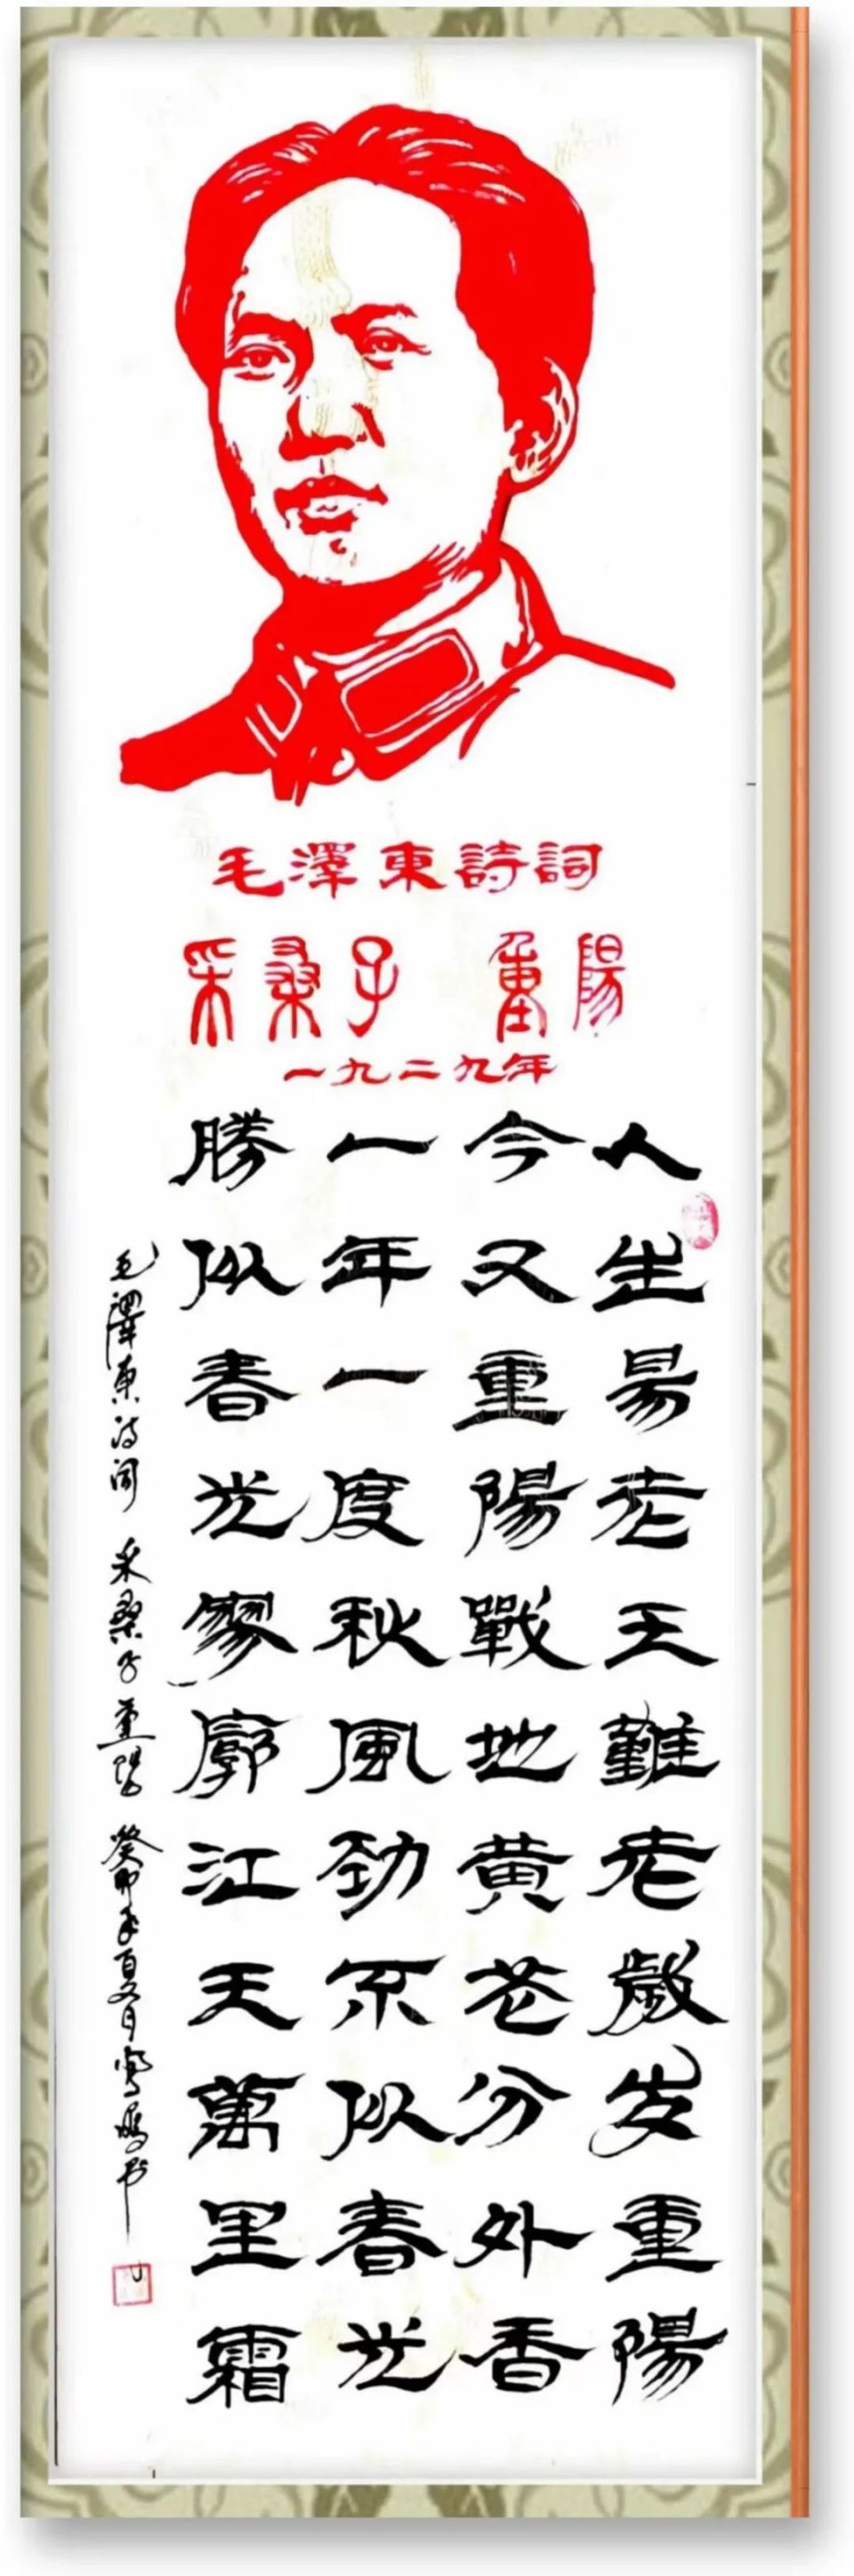 毛澤東詩詞
采桑子 重陽
一九二九年
人生易老天難老歲岁重陽
今又重陽戰地黄花分外香
一年一度秋風勁不似春光
勝似春光寥廓江天萬里霜
毛澤東诗词 采桑子重陽 癸卯年夏月 书